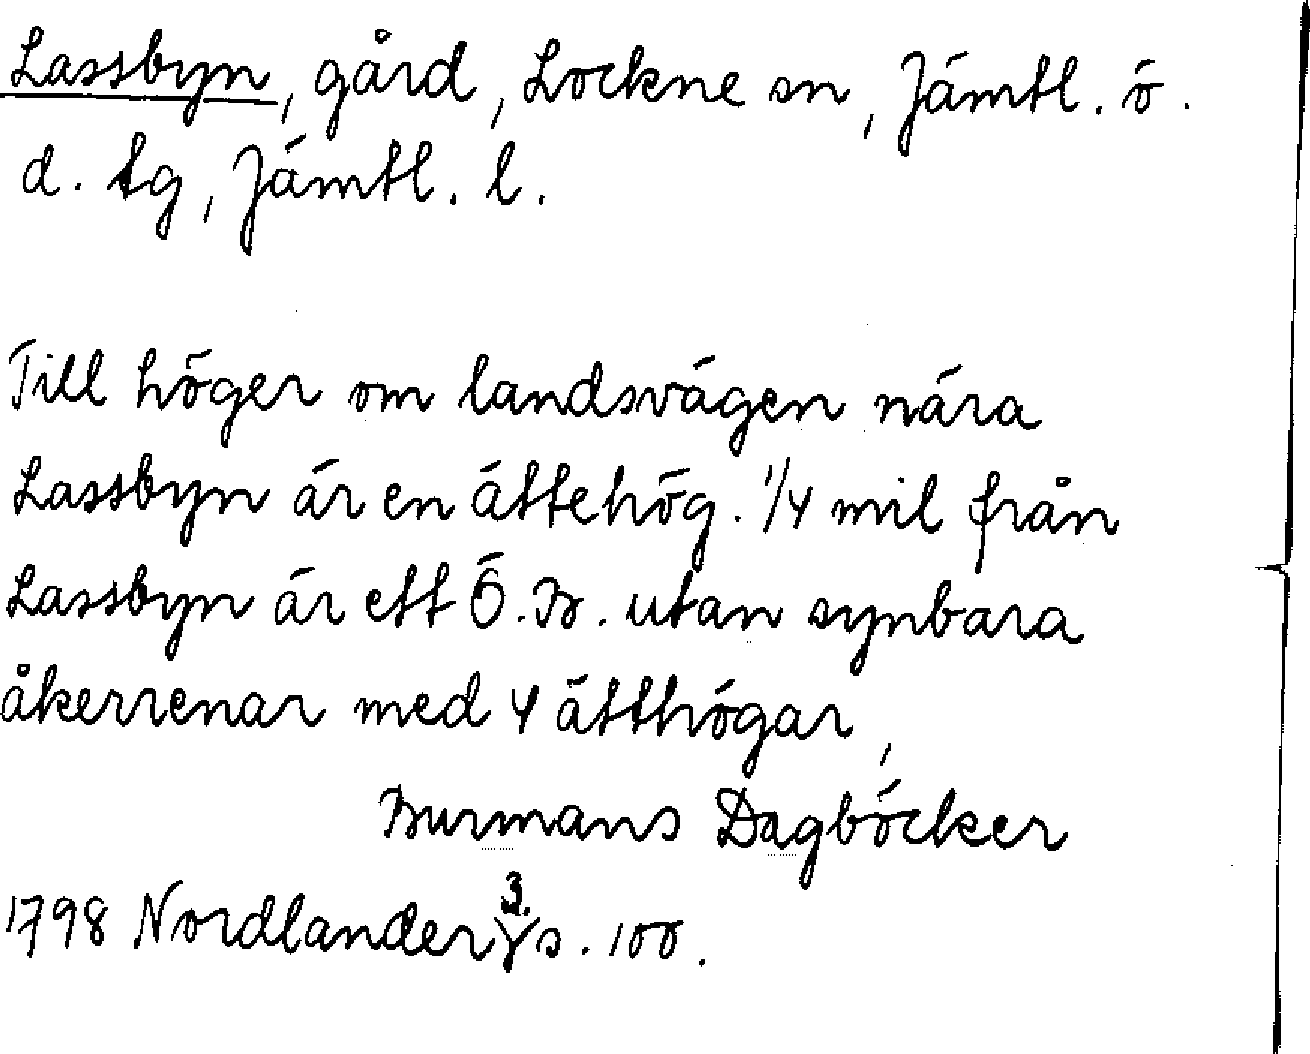 Lassbyn, gård, Lockne sn, Jämtl. ö.
d. tg, Jämtl. l.
Till höger om landsvägen nära
Lassbyn är en ättehög. 1/4 mil från
Lassbyn är ett Ö.B. utan synbara
åkerrenar med 4 ätthögar,
Burmans Dagböcker
1798 Nordlander 3. s. 100.